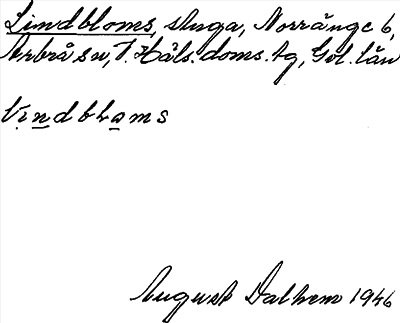 Lindbloms, stuga, Norränge 6,
Arbrå sn, V. Häls. doms. tg, Gvl. län
Vindbloms
August Dalhem 1946